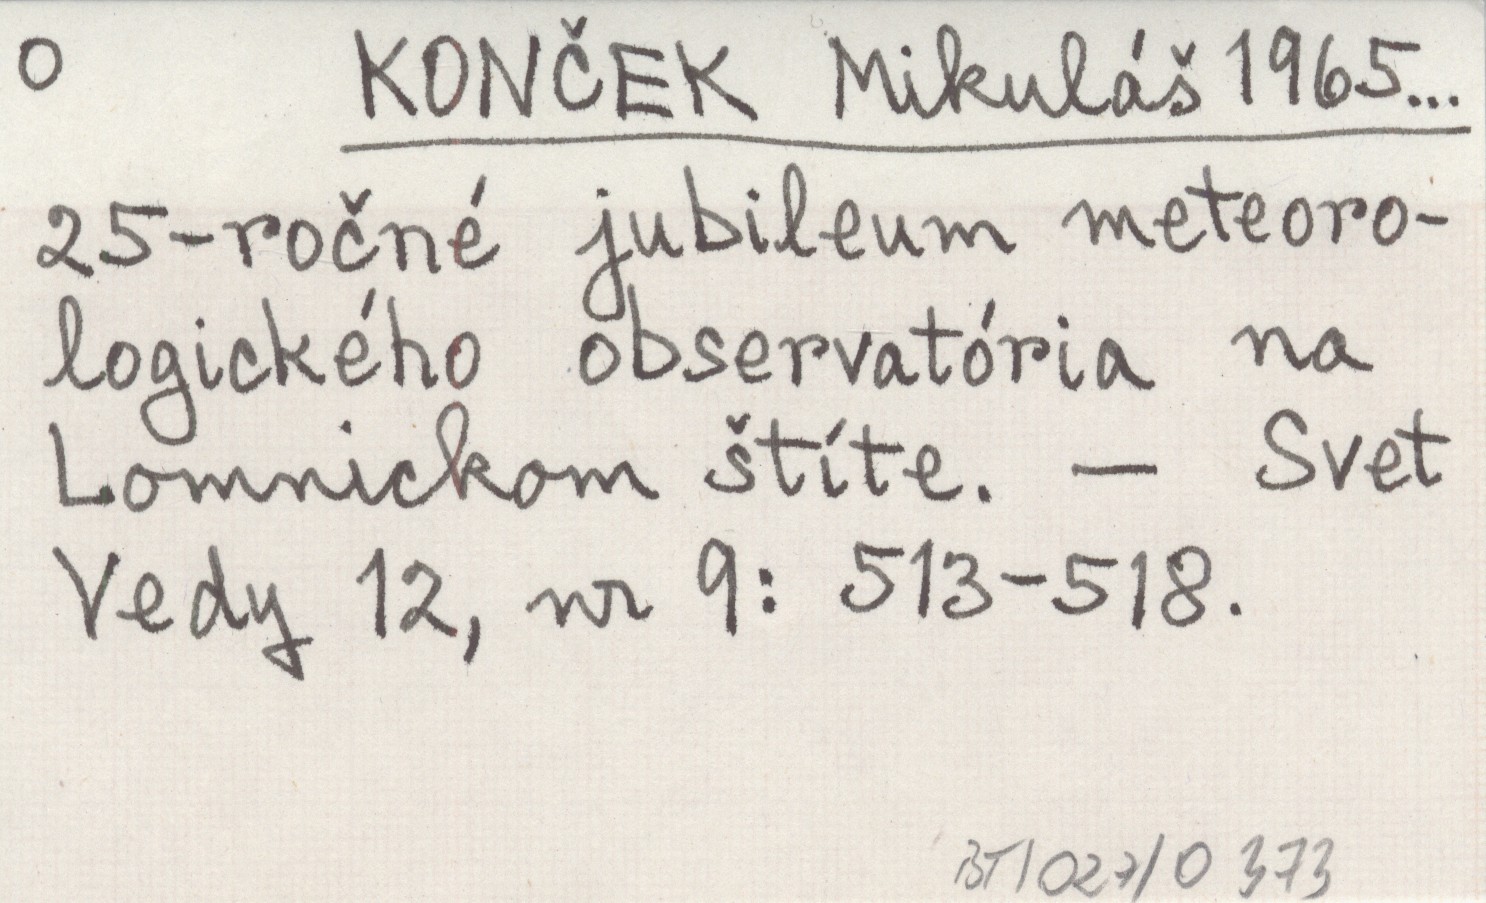 O KONČEK Mikuláš 1965...
25-ročné jubileum meteoro-
logického observatória na
Lomnickom štíte. — Svet
Vedy 12, nr 9: 513-518.
BT/027/O 373